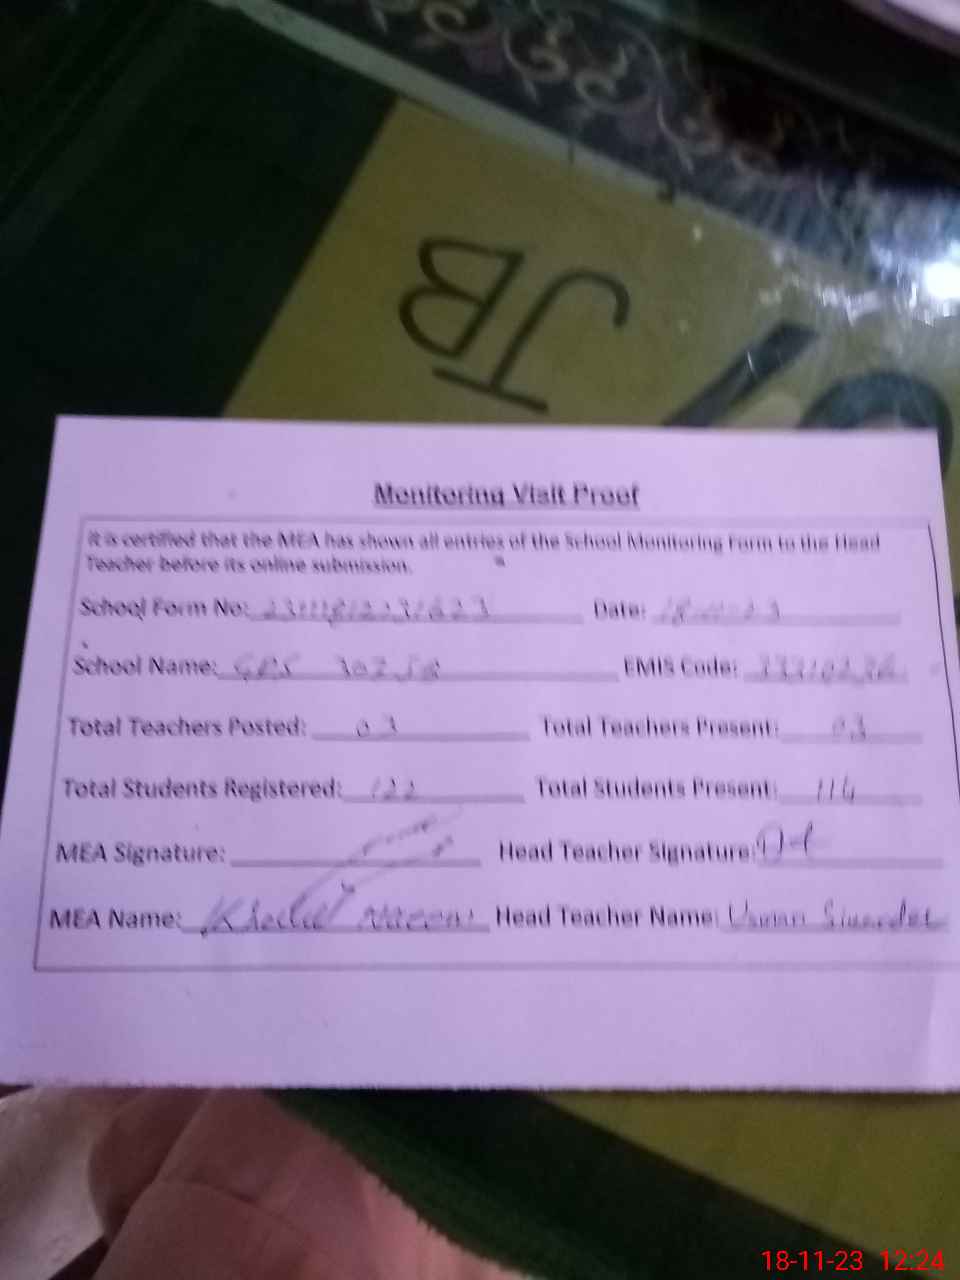 JB
Monitoring Visit Proof
It is certified that the MEA has shown all entries of the School Monitoring Form to the Head
Teacher before its online submission.
School Form No: Date: 18-11-23
School Name: GPS 302 JB EMIS Code:
Total Teachers Posted: 03 Total Teachers Present: 03
Total Students Registered: 122 Total Students Present: 114
MEA Signature: Head Teacher Signature:
MEA Name: Head Teacher Name: Usman
18-11-23 12:24